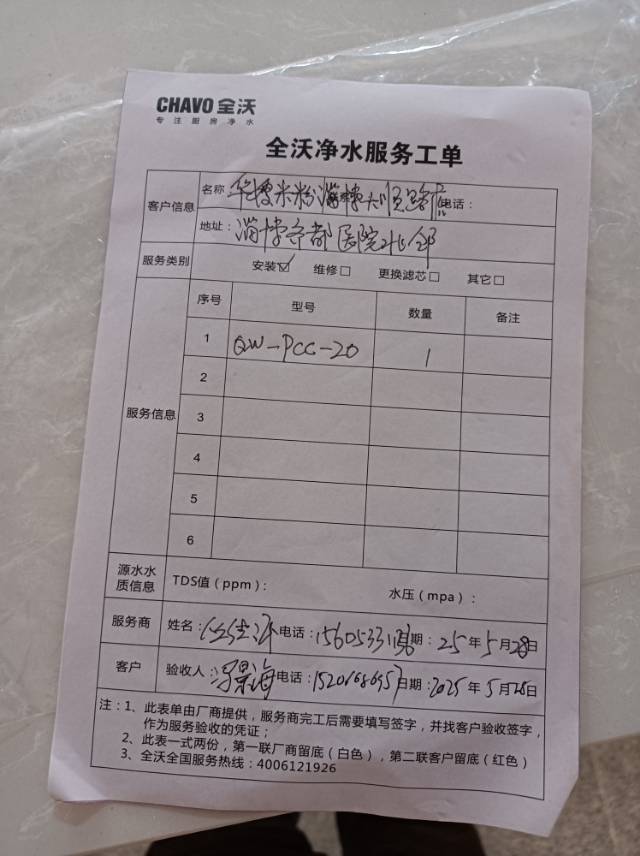 CHAVO 全沃
专注厨房净水
全沃净水服务工单
客户信息
名称 华搜米粉淄博大顺路店 电话：
地址：淄博齐都医院北邻
服务类别 安装☑ 维修□ 更换滤芯□ 其它□
服务信息
序号 型号 数量 备注
1 QW-PCC-20 1
2
3
4
5
6
源水水质信息 TDS值（ppm）： 水压（mpa）：
服务商 姓名： 电话： 期：25年5月28日
客户 验收人： 电话： 日期：2025年5月28日
注：1、此表单由厂商提供，服务商完工后需要填写签字，并找客户验收签字，
作为服务验收的凭证；
2、此表一式两份，第一联厂商留底（白色），第二联客户留底（红色）
3、全沃全国服务热线：4006121926